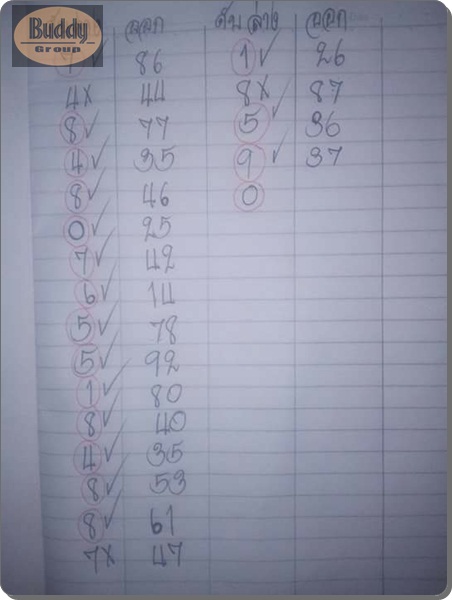 Buddy
Group
ออก ดับล่าง ออก
1✓ 86 1✓ 26
4x 44 8x 87
8✓ 77 5✓ 36
4✓ 35 9✓ 37
8✓ 46 0
0✓ 25
7✓ 42
6✓ 14
5✓ 78
5✓ 92
1✓ 80
8✓ 40
4✓ 35
8✓ 53
8✓ 61
7x 47